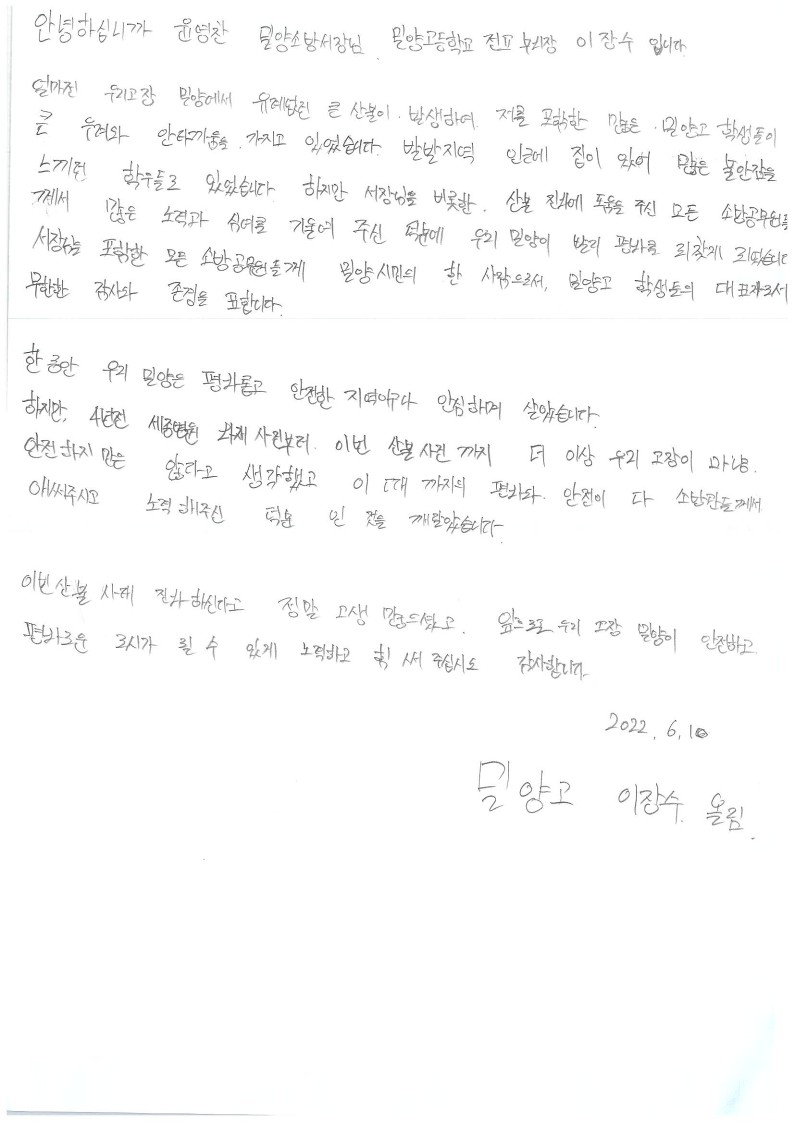 안녕하십니까 윤영찬 밀양소방서장님 밀양고등학교 전교 부회장 이장수 입니다
얼마전 우리고장 밀양에서 유례없던 큰 산불이 발생하여 저를 포함한 많은 밀양고 학생들이
큰 우려와 안타까움을 가지고 있었습니다. 발발지역 인근에 집이 있어 많은 불안감을
느끼던 학우들도 있었습니다. 하지만 서장님을 비롯한 산불 진화에 도움을 주신 모든 소방공무원들
께서 많은 노력과 심여를 기울여 주신 덕분에 우리 밀양이 빨리 평화를 되찾게 되었습니다
서장님을 포함한 모든 소방공무원들께 밀양시민의 한 사람으로서, 밀양고 학생들의 대표자로서
무한한 감사와 존경을 표합니다.
한동안 우리 밀양은 평화롭고 안전한 지역이구나 안심하며 살았습니다.
하지만, 4년전 세종병원 화재 사건부터 이번 산불사건 까지 더 이상 우리 고장이 마냥
안전하지 만은 않다고 생각했고 이 때 까지의 평화와 안전이 다 소방관들께서
애써주시고 노력해주신 덕분 인 것을 깨달았습니다
이번산불 사태 진화하신다고 정말 고생 많으셨고. 앞으로도 우리 고장 밀양이 안전하고
평화로운 도시가 될 수 있게 노력하고 힘 써 주십시오 감사합니다.
2022. 6. 10
밀양고 이장수 올림.